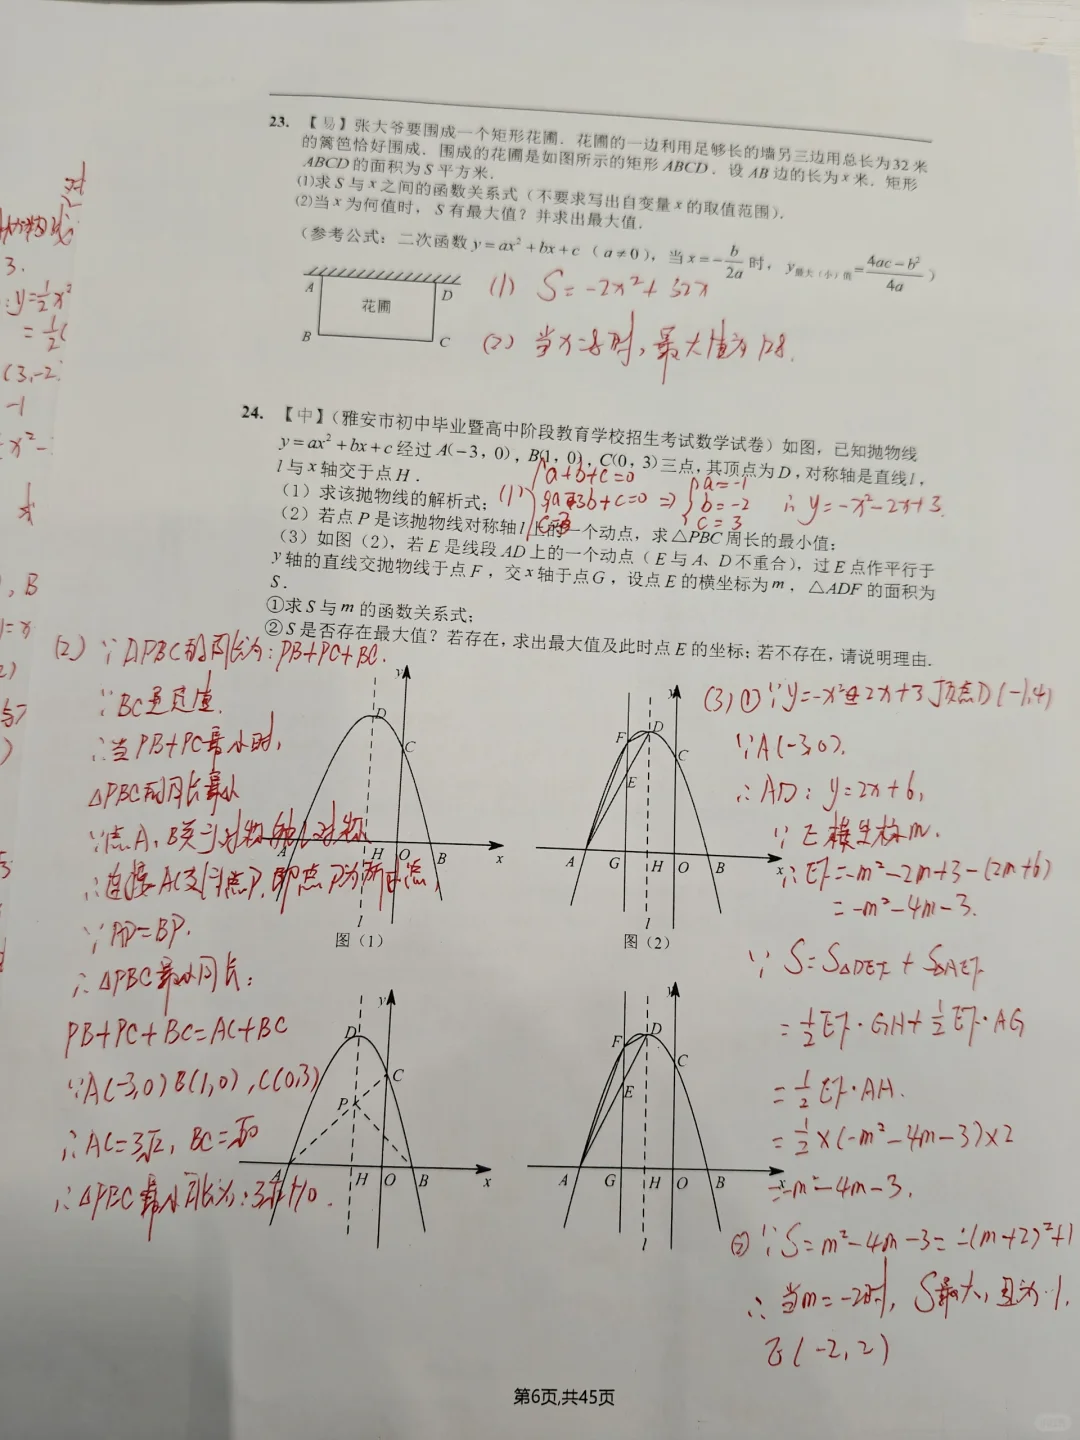 23. 【易】张大爷要围成一个矩形花圃．花圃的一边利用足够长的墙另三边用总长为32米
的篱笆恰好围成．围成的花圃是如图所示的矩形 ABCD．设 AB 边的长为 x 米．矩形
ABCD 的面积为 S 平方米．
(1)求 S 与 x 之间的函数关系式（不要求写出自变量 x 的取值范围）．
(2)当 x 为何值时，S 有最大值？并求出最大值．
（参考公式：二次函数 y=ax²+bx+c（a≠0），当 x=-b/2a 时，y最大（小）值=4ac-b²/4a）
A D
花圃
B C
(1) S=-2x²+32x
(2) 当x=8时，最大值为128．
24. 【中】（雅安市初中毕业暨高中阶段教育学校招生考试数学试卷）如图，已知抛物线
y=ax²+bx+c 经过 A(-3，0)，B(1，0)，C(0，3)三点，其顶点为 D，对称轴是直线 l，
l 与 x 轴交于点 H．
（1）求该抛物线的解析式；
(1) a+b+c=0
9a-3b+c=0
c=3
⇒ a=-1
b=-2
c=3
∴ y=-x²-2x+3.
（2）若点 P 是该抛物线对称轴 l 上的一个动点，求△PBC 周长的最小值；
（3）如图（2），若 E 是线段 AD 上的一个动点（E 与 A、D 不重合），过 E 点作平行于
y 轴的直线交抛物线于点 F，交 x 轴于点 G，设点 E 的横坐标为 m，△ADF 的面积为
S．
①求 S 与 m 的函数关系式；
②S 是否存在最大值？若存在，求出最大值及此时点 E 的坐标；若不存在，请说明理由．
(2) ∵△PBC的周长为：PB+PC+BC.
∵BC是定值．
∴当PB+PC最小时，
△PBC的周长最小
∵点A、B关于对称轴l对称
∴连接AC交l于点P，即点P为所求点，
∵AP=BP.
∴△PBC最小周长：
PB+PC+BC=AC+BC
∵A(-3,0) B(1,0), C(0,3)
∴AC=3√2, BC=√10
∴△PBC最小周长为：3√2+√10.
y D C A H O B x l
图（1）
y F D C E A G H O B x l
图（2）
y D C P A H O B x
y F D C E A G H O B x l
(3) ① ∵y=-x²-2x+3 顶点D(-1,4)
∵A(-3,0).
∴AD: y=2x+6,
∵E横坐标m.
∴EF=-m²-2m+3-(2m+6)
=-m²-4m-3.
∵ S=S△DEF+S△AEF
=½EF·GH+½EF·AG
=½EF·AH.
=½×(-m²-4m-3)×2
=-m²-4m-3.
② ∵S=m²-4m-3=-(m+2)²+1
∴当m=-2时，S最大，且为1，
E(-2,2)
第6页,共45页
对
3.
=½(
(3,-2
-1
, B